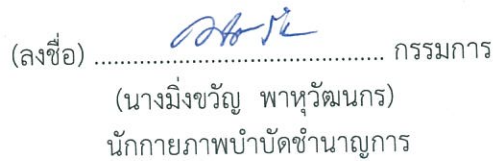 (ลงชื่อ) ................................................ กรรมการ
(นางมิ่งขวัญ พาหุวัฒนกร)
นักกายภาพบำบัดชำนาญการ